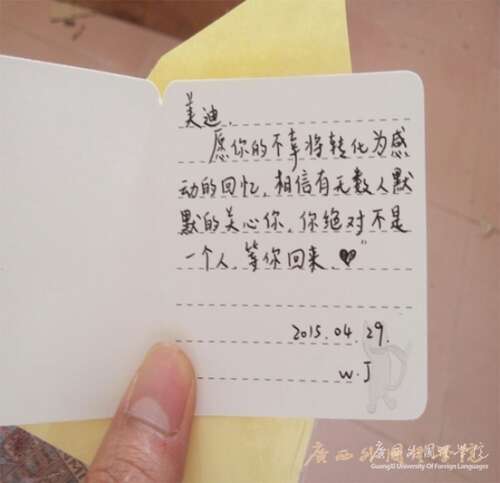 美迪，
愿你的不幸将转化为感
动的回忆，相信有无数人默
默的关心你，你绝对不是
一个人，等你回来。
2015.04.29.
W.J
广西外国语学院
GuangXi University Of Foreign Languages